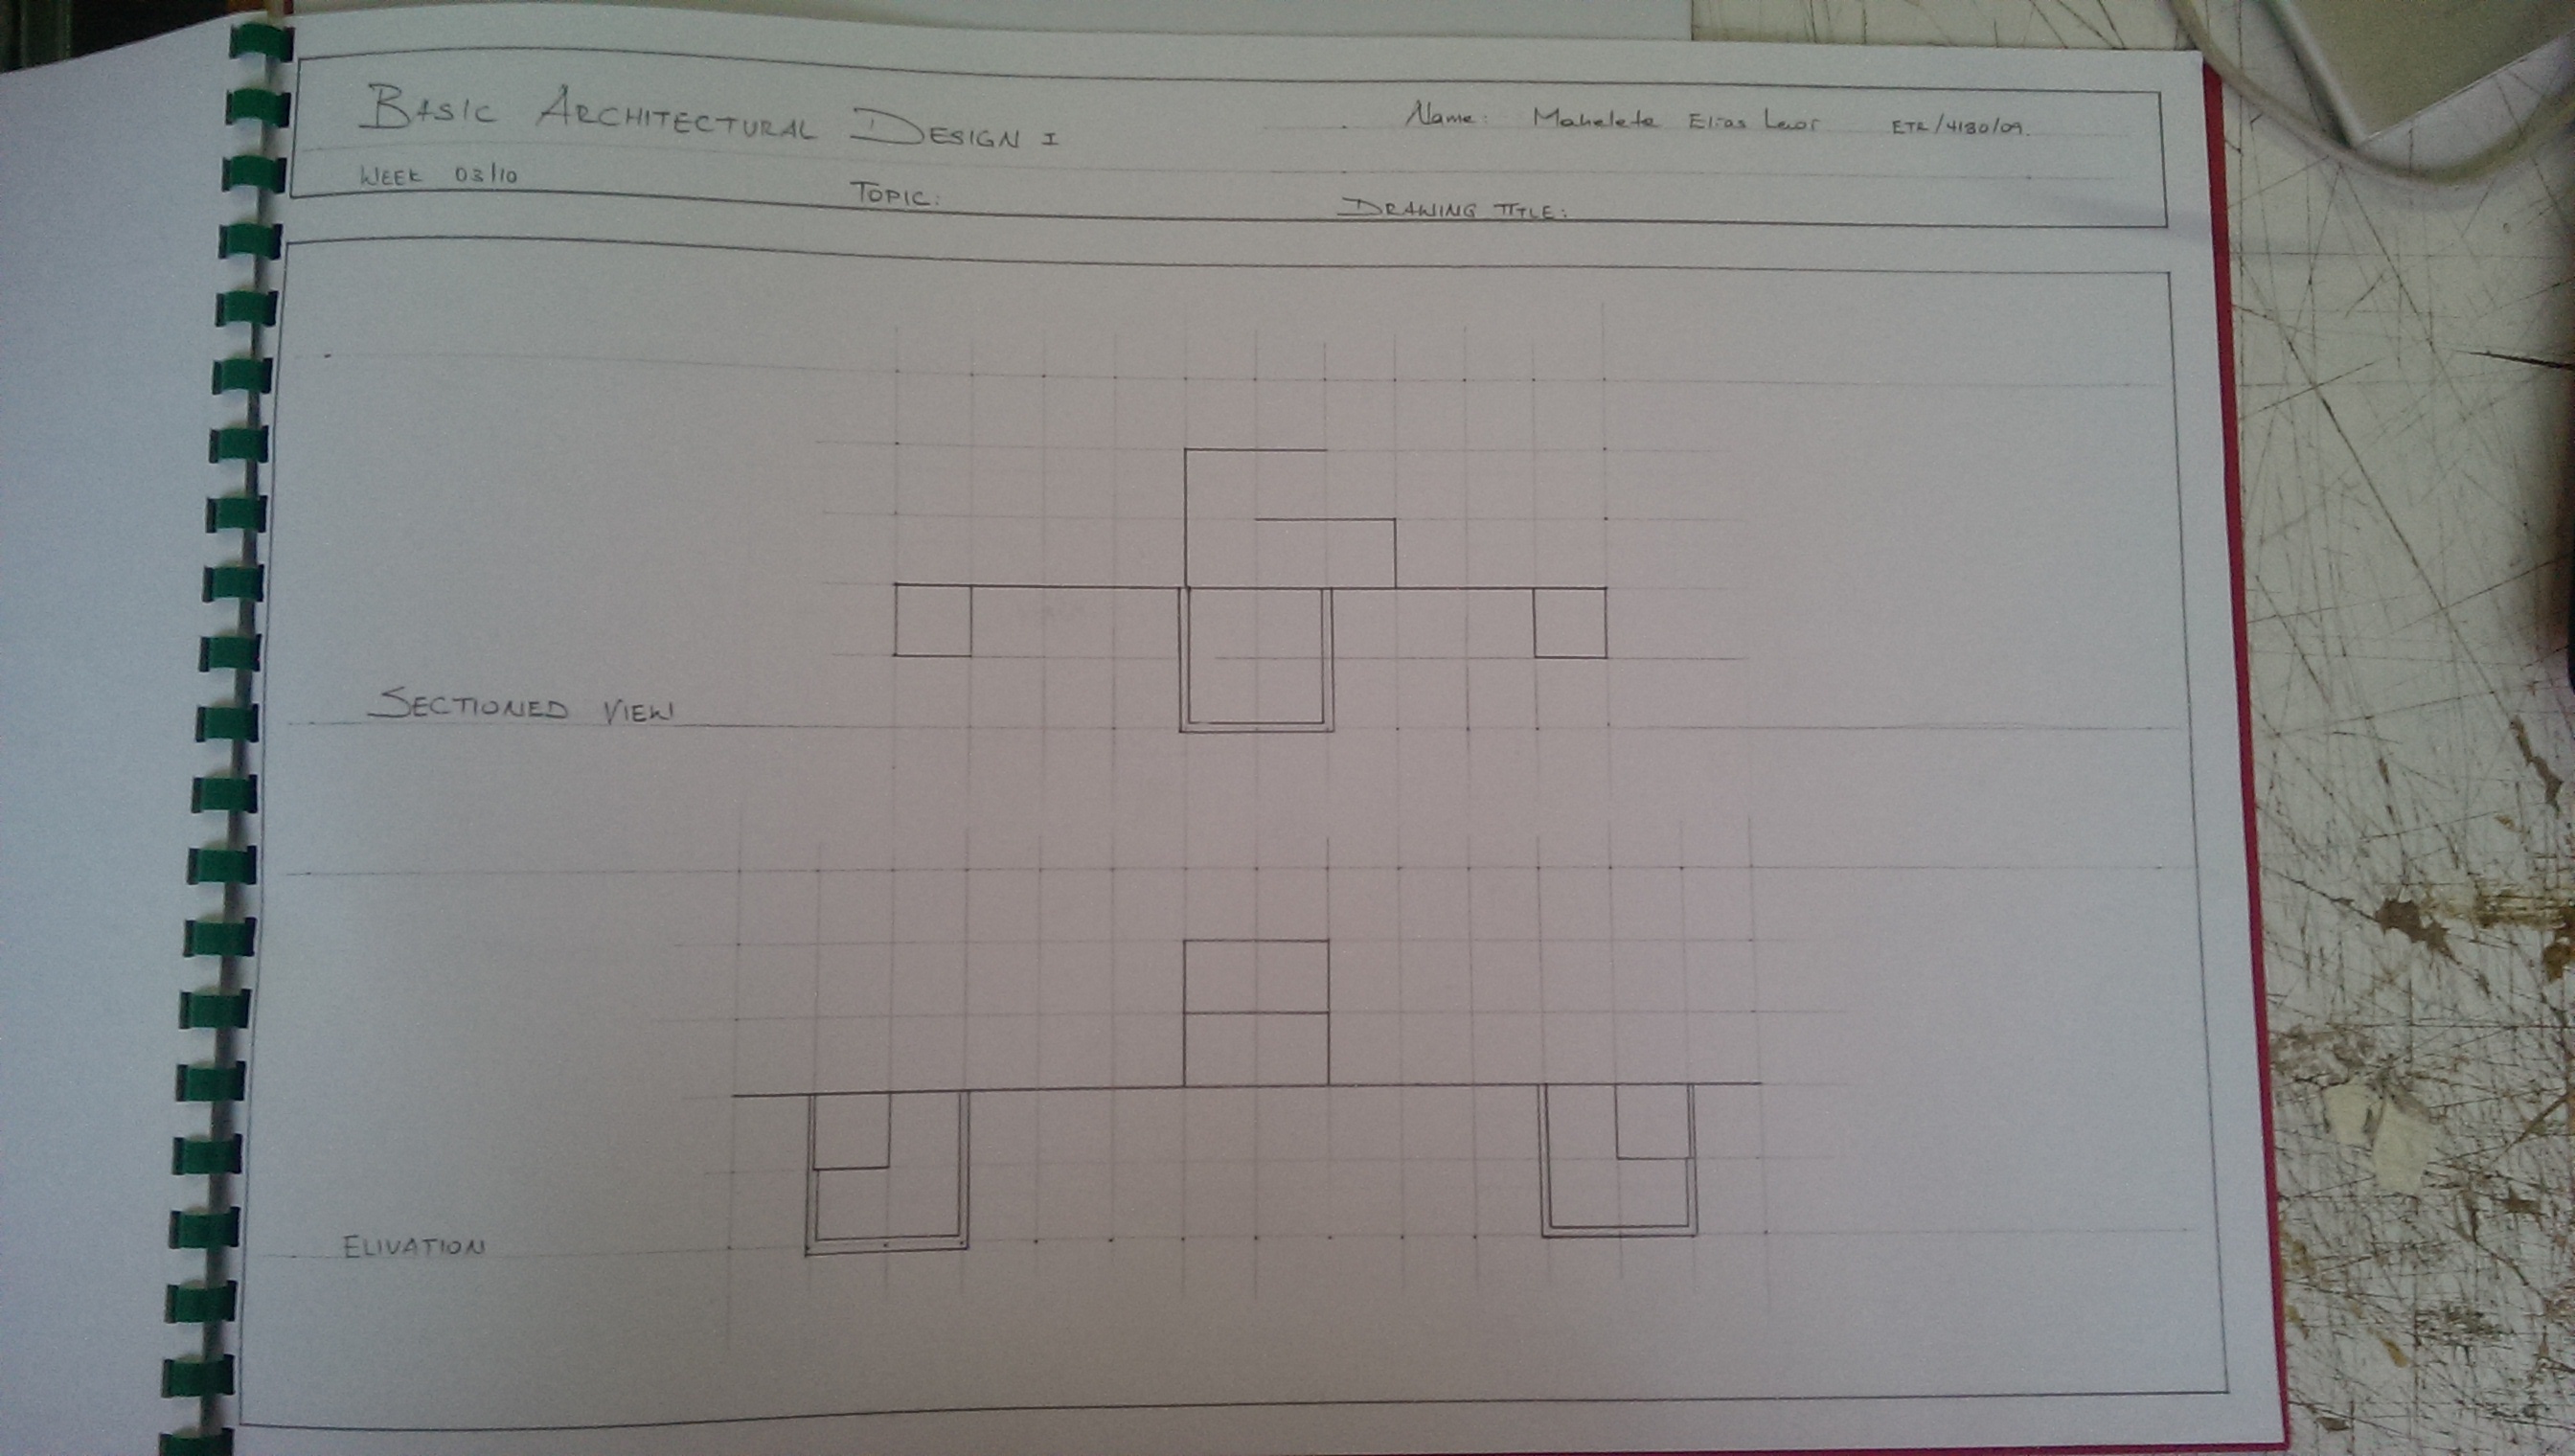 BASIC ARCHITECTURAL DESIGN I
Name: Mahelete Elias ETR/4180/09.
WEEK 03/10
TOPIC:
DRAWING TITLE:
SECTIONED VIEW
ELIVATION